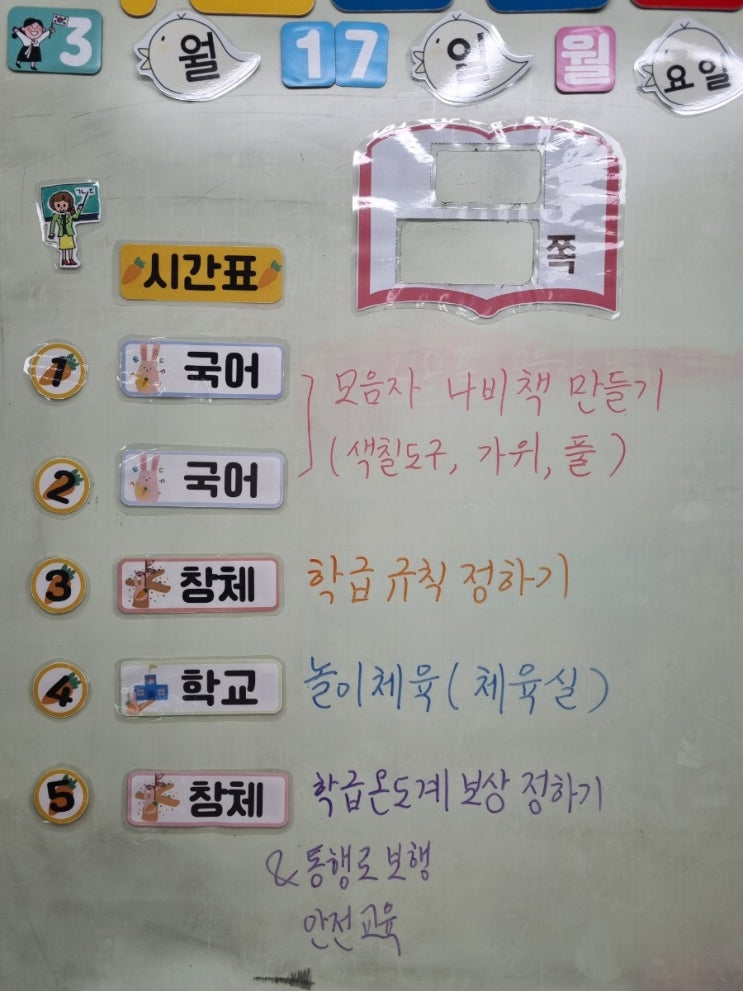 3 월 17 일 월 요일
쪽
시간표
1 국어 모음자 나비책 만들기
(색칠도구, 가위, 풀)
2 국어
3 창체 학급 규칙 정하기
4 학교 놀이체육(체육실)
5 창체 학급온도계 보상 정하기
& 통행로 보행
안전교육